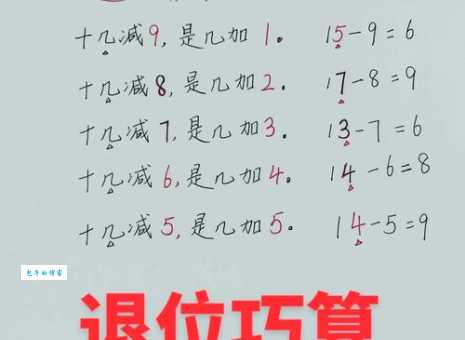 十几减9,是几加1。 15-9=6
十几减8,是几加2。 17-8=9
十几减7,是几加3。 13-7=6
十几减6,是几加4。 14-6=8
十几减5,是几加5。 14-5=9
退位巧算